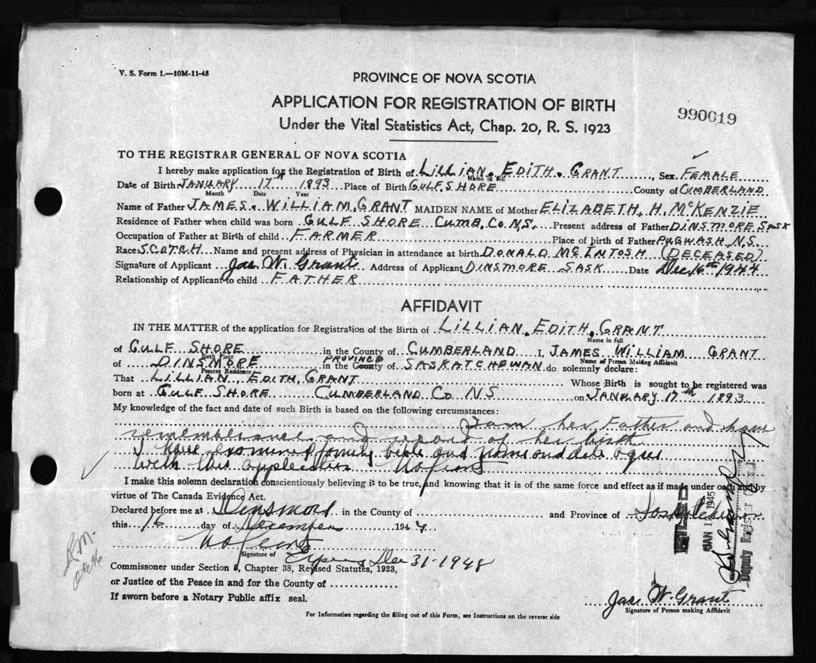 V. S. Form 1.—10M-11-43
PROVINCE OF NOVA SCOTIA
APPLICATION FOR REGISTRATION OF BIRTH
Under the Vital Statistics Act, Chap. 20, R. S. 1923
990019
TO THE REGISTRAR GENERAL OF NOVA SCOTIA
I hereby make application for the Registration of Birth of LILLIAN. EDITH. GRANT, Sex FEMALE
Name in full
Date of Birth JANUARY 17th 1893 Place of Birth GULF SHORE County of CUMBERLAND
Month Date Year
Name of Father JAMES. WILLIAM GRANT MAIDEN NAME of Mother ELIZABETH. H. McKENZIE
Residence of Father when child was born GULF SHORE CUMB. CO. N.S. Present address of Father DINSMORE SASK
Occupation of Father at Birth of child FARMER Place of birth of Father PUGWASH, N.S.
Race SCOTCH Name and present address of Physician in attendance at birth DONALD McINTOSH (DECEASED)
Signature of Applicant Jas W. Grant Address of Applicant DINSMORE SASK Date Dec 16th 1944
Relationship of Applicant to child FATHER
AFFIDAVIT
IN THE MATTER of the application for Registration of the Birth of LILLIAN. EDITH. GRANT
Name in full
of GULF SHORE in the County of CUMBERLAND I, JAMES WILLIAM GRANT
Birth Place Name of Person Making Affidavit
of DINSMORE in the County PROVINCE of SASKATCHEWAN do solemnly declare:
Present Residence
That LILLIAN EDITH, GRANT Whose Birth is sought to be registered was
born at GULF SHORE CUMBERLAND CO NS on JANUARY 17th 1893
My knowledge of the fact and date of such Birth is based on the following circumstances:
I am her Father and have
remembrance and record of her birth
I have examined family bible and name and date agree
with this application
I make this solemn declaration conscientiously believing it to be true, and knowing that it is of the same force and effect as if made under oath and by
virtue of The Canada Evidence Act.
Declared before me at Dinsmore in the County of and Province of Saskatchewan
this 16 day of December 1944
Signature of Expires Dec 31-1948
Commissioner under Section 8, Chapter 38, Revised Statutes, 1923,
or Justice of the Peace in and for the County of
If sworn before a Notary Public affix seal.
Jas W. Grant
Signature of Person making Affidavit
For Information regarding the filling out of this Form, see Instructions on the reverse side
FILED
JAN 1945
Deputy Registrar
R.M.